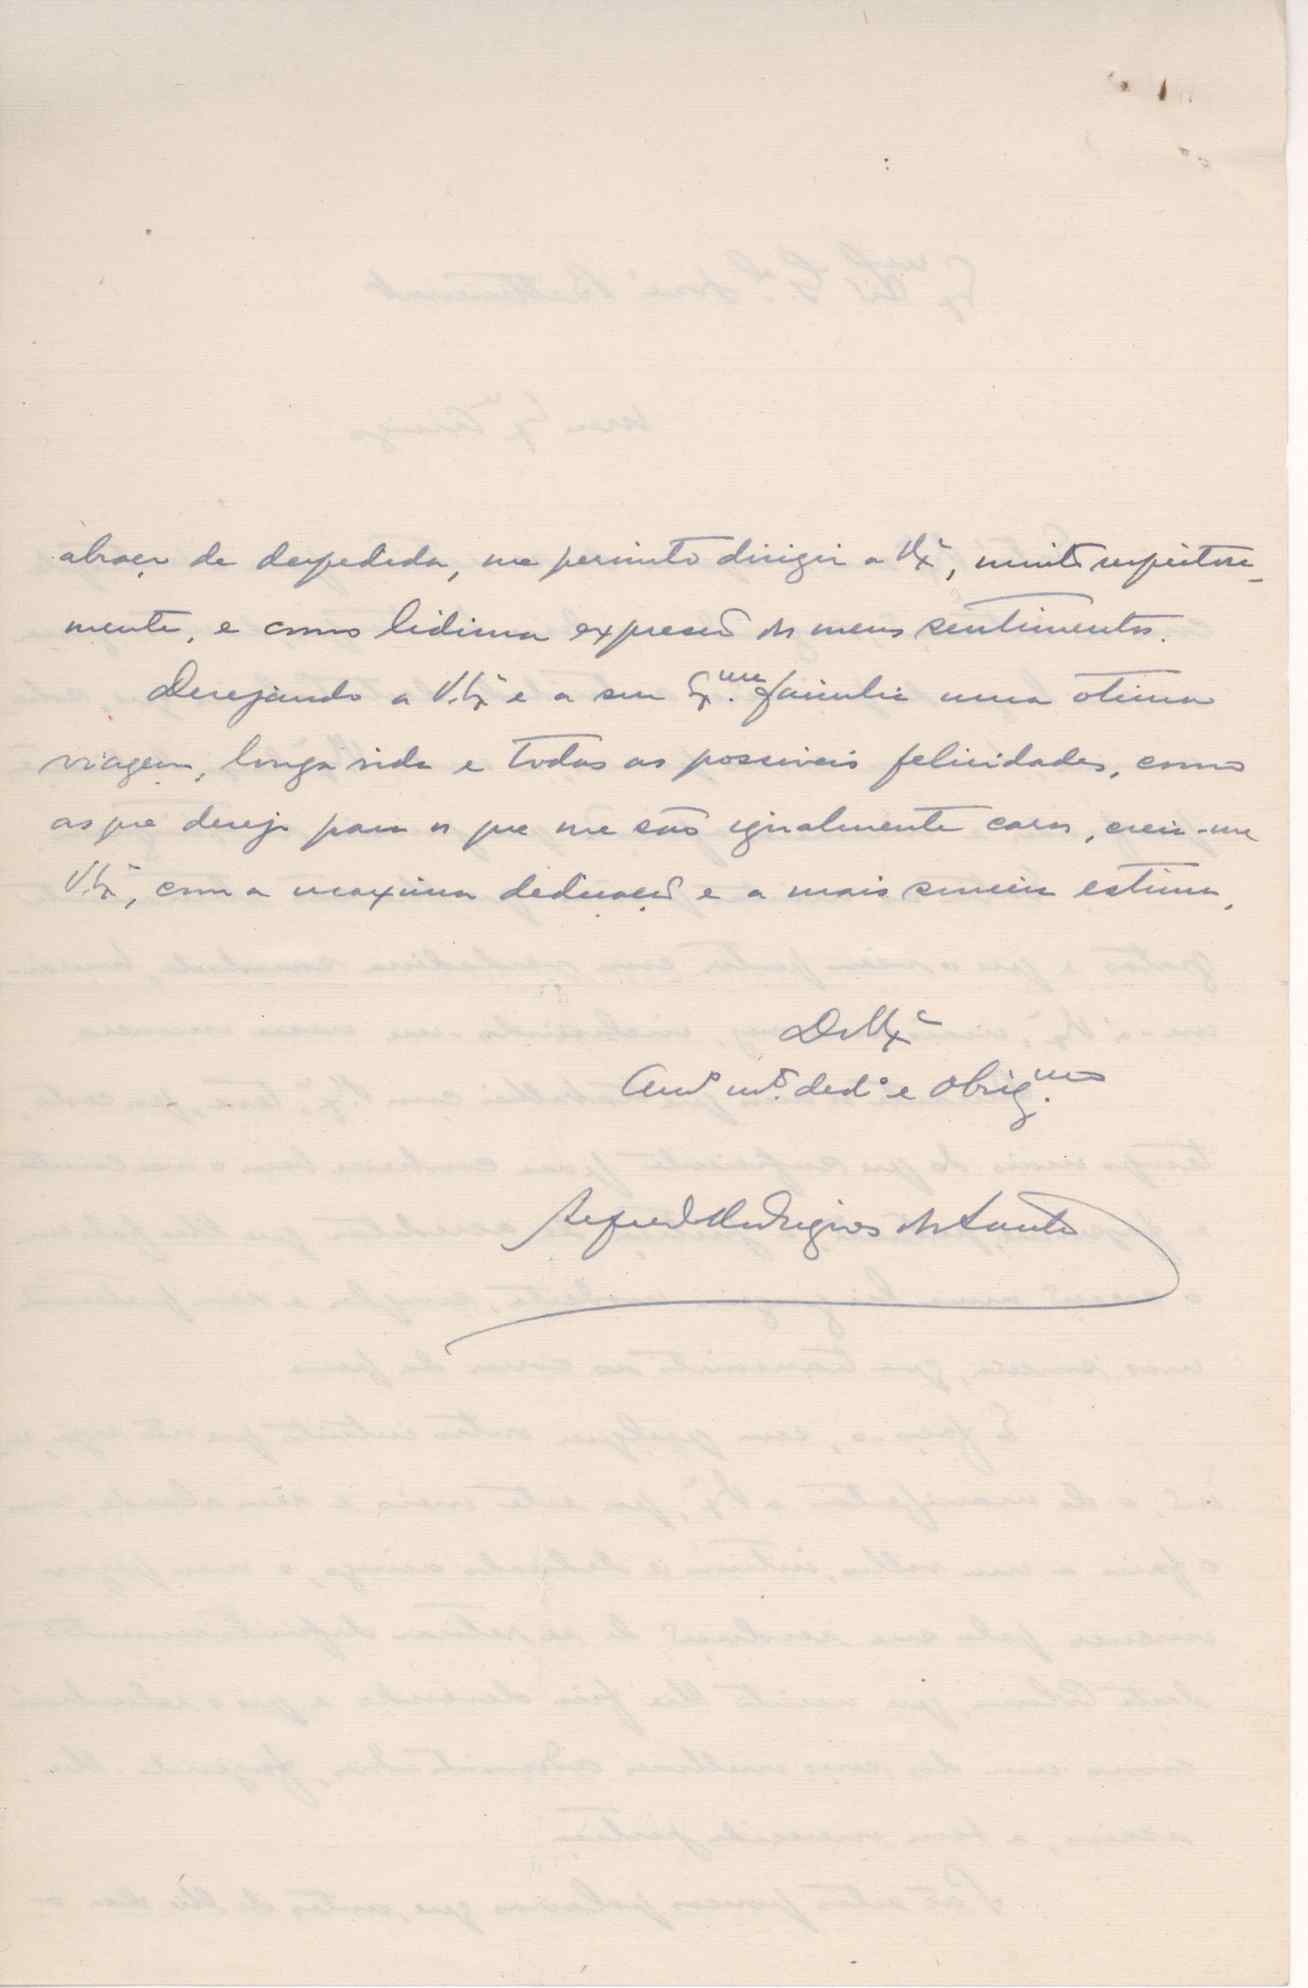 abraço de despedida, me permito dirigir a V.Exª, muito respeitosa-
mente, e como lidima expressão dos meus sentimentos.
Desejando a V.Exª e a sua Exma. familia uma otima
viagem, longa vida e todas as possiveis felicidades, como
as que desejo para os que me são igualmente caros, creia-me
V.Exª, com a maxima dedicação e a mais sincera estima,
De V.Exª
Amº mtº. dedº e obrigmo.
Rodrigues dos Santos